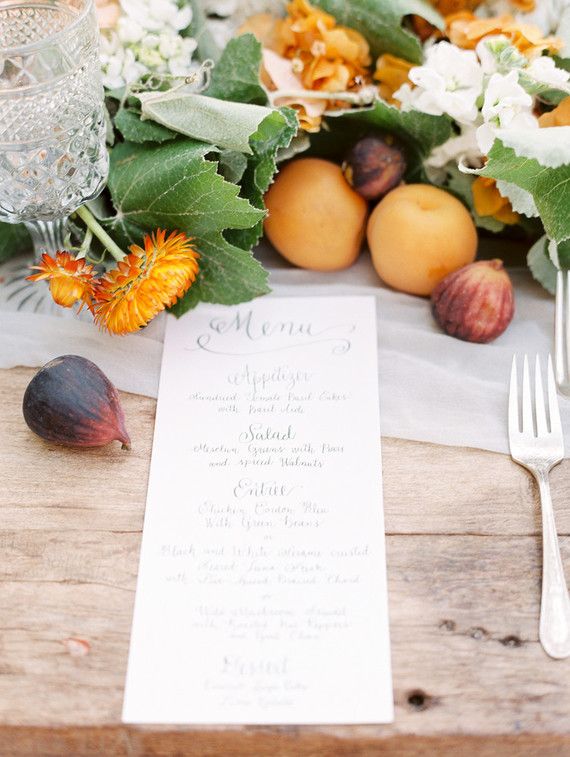 Menu
Appetizer
Sundried Tomato Basil Cakes
with Basil Aioli
Salad
Mesclun Greens with Pears
and spiced Walnuts
Entrée
Chicken Cordon Bleu
With Green Beans
or
Black and White Sesame crusted
Seared Tuna Steak
with Braised Chard
or
Wild Mushroom
with Roasted Red Peppers
and Goat
Dessert